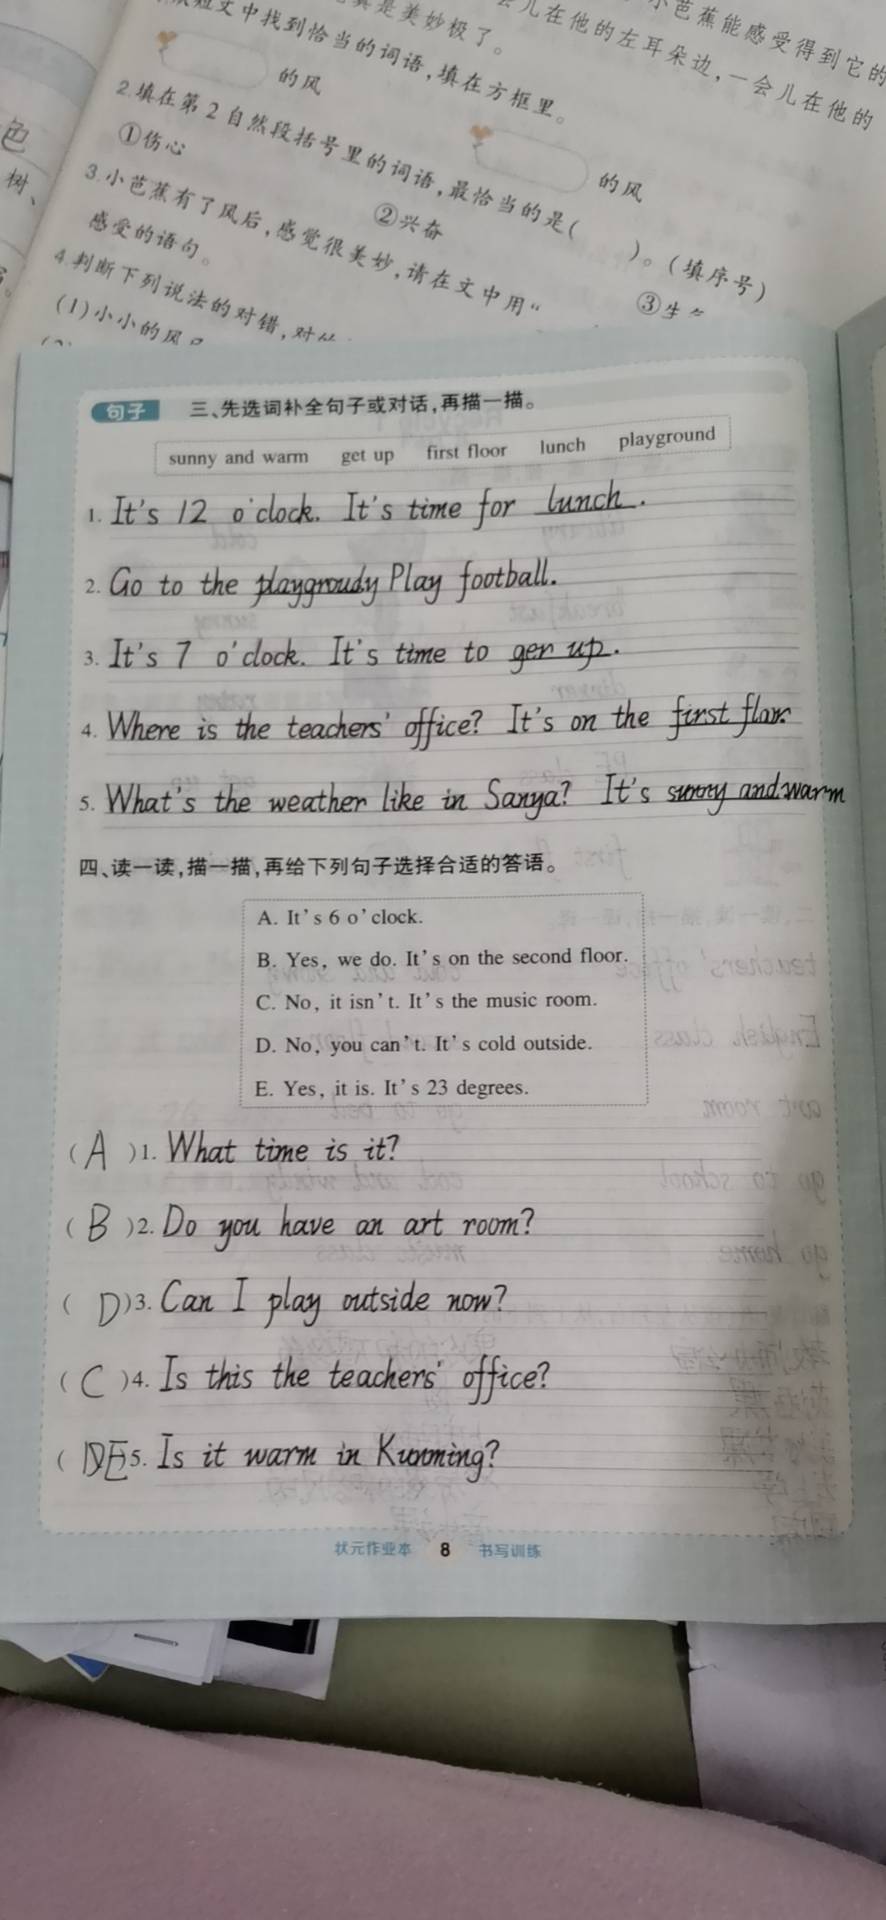 真是美妙极了。
会儿在他的左耳朵边,一会儿在他的
小芭蕉能感受得到它的
短文中找到恰当的词语,填在方框里。
的风
的风
2.填在第2自然段括号里的词语,最恰当的是( )。(填序号)
①伤心
②兴奋
③生
3.小芭蕉有了风后,感觉很美妙,请在文中用“
感受的语句。
4.判断下列说法的对错,对
(1)小小的风
色
树、
句子 三、先选词补全句子或对话,再描一描。
sunny and warm get up first floor lunch playground
1. It's 12 o'clock. It's time for lunch.
2. Go to the playgroudy Play football.
3. It's 7 o'clock. It's time to ger up.
4. Where is the teachers' office? It's on the first flour
5. What's the weather like in Sanya? It's sunny and warm
四、读一读,描一描,再给下列句子选择合适的答语。
A. It's 6 o'clock.
B. Yes, we do. It's on the second floor.
C. No, it isn't. It's the music room.
D. No, you can't. It's cold outside.
E. Yes, it is. It's 23 degrees.
( A )1. What time is it?
( B )2. Do you have an art room?
( D )3. Can I play outside now?
( C )4. Is this the teachers' office?
( E 5. Is it warm in Kunming?
状元作业本 8 书写训练